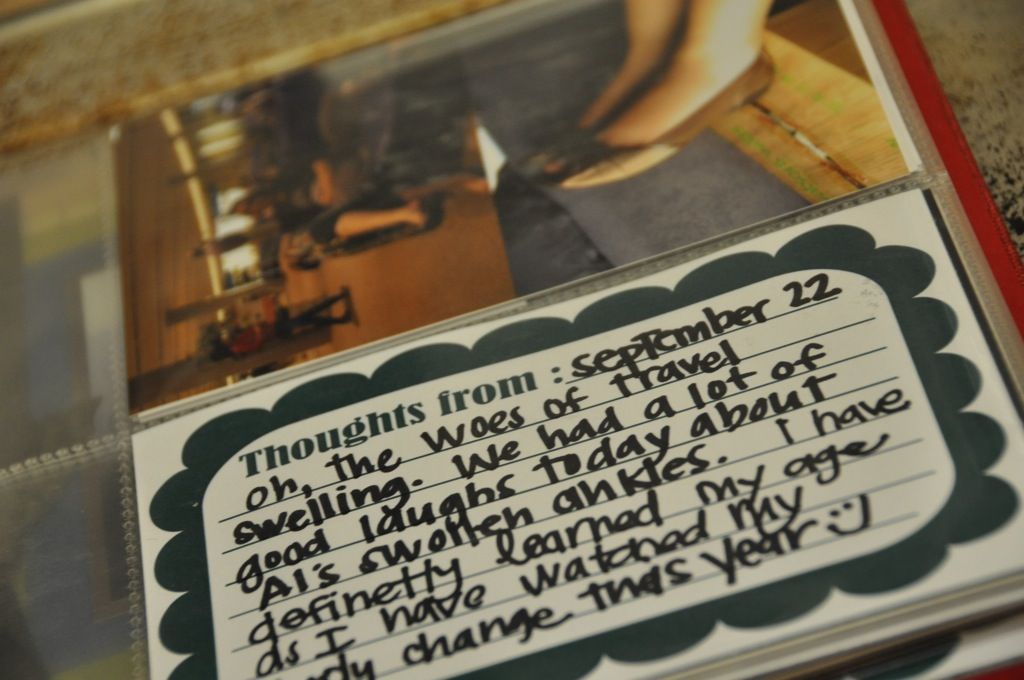 Thoughts from : september 22
oh, the woes of travel
swelling. We had a lot of
good laughs today about
Al's swollen ankles. I have
definetly learned my age
as I have watched my
body change this year :)